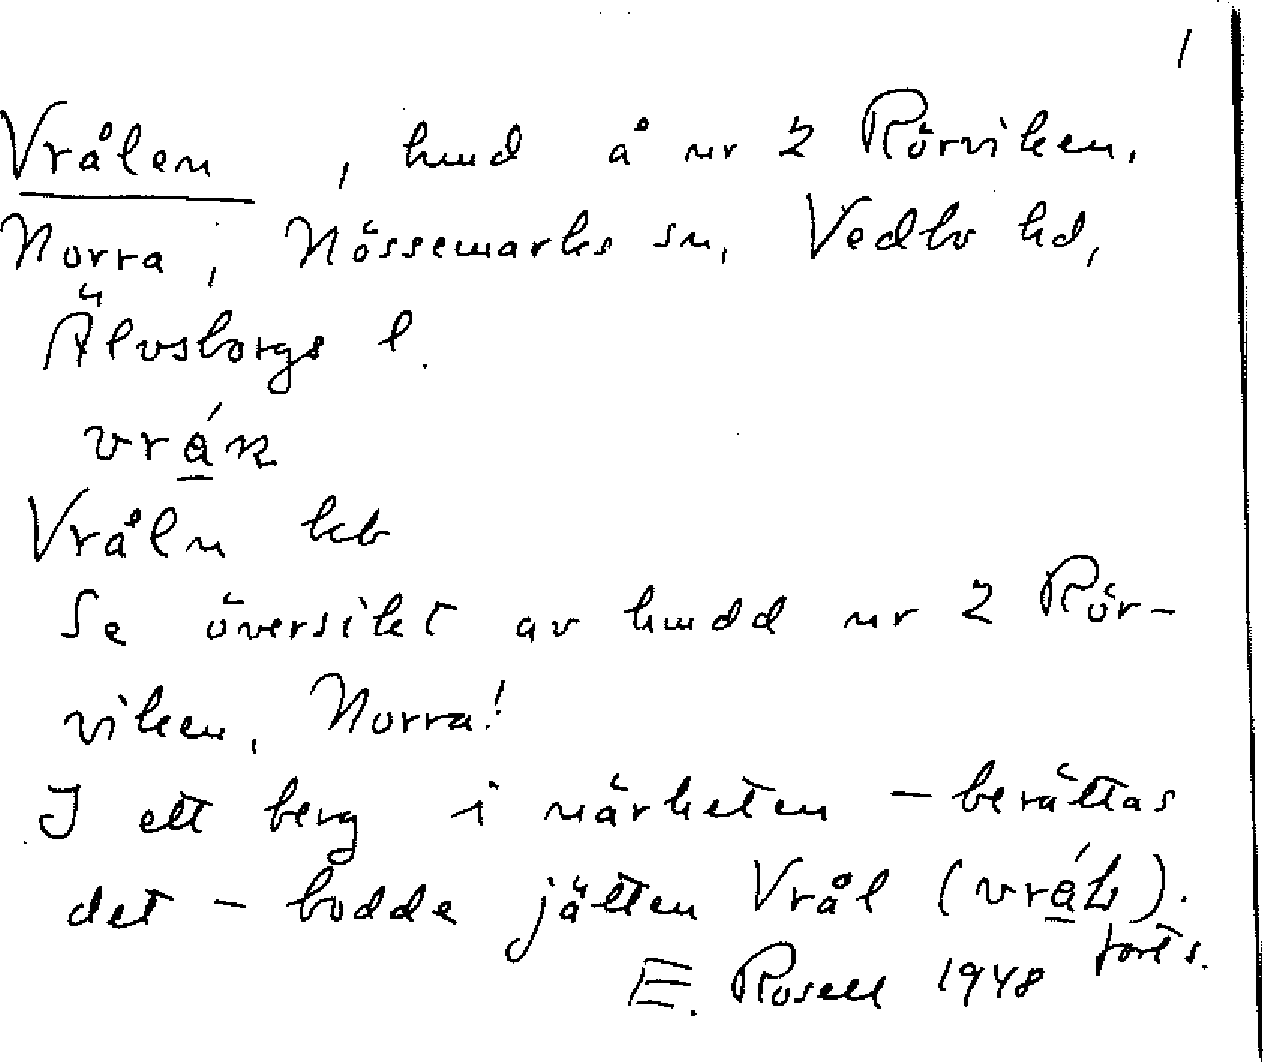 1
Vrålen , hmd å nr 2 Rörviken,
Norra, Nössemarks sn, Vedbo hd,
Älvsborgs l.
vrán
Vråln kb
Se översikt av hmdd nr 2 Rör-
viken, Norra!
I ett berg i närheten - berättas
det - bodde jätten Vrål (vráɫ).
forts.
E. Rosell 1948